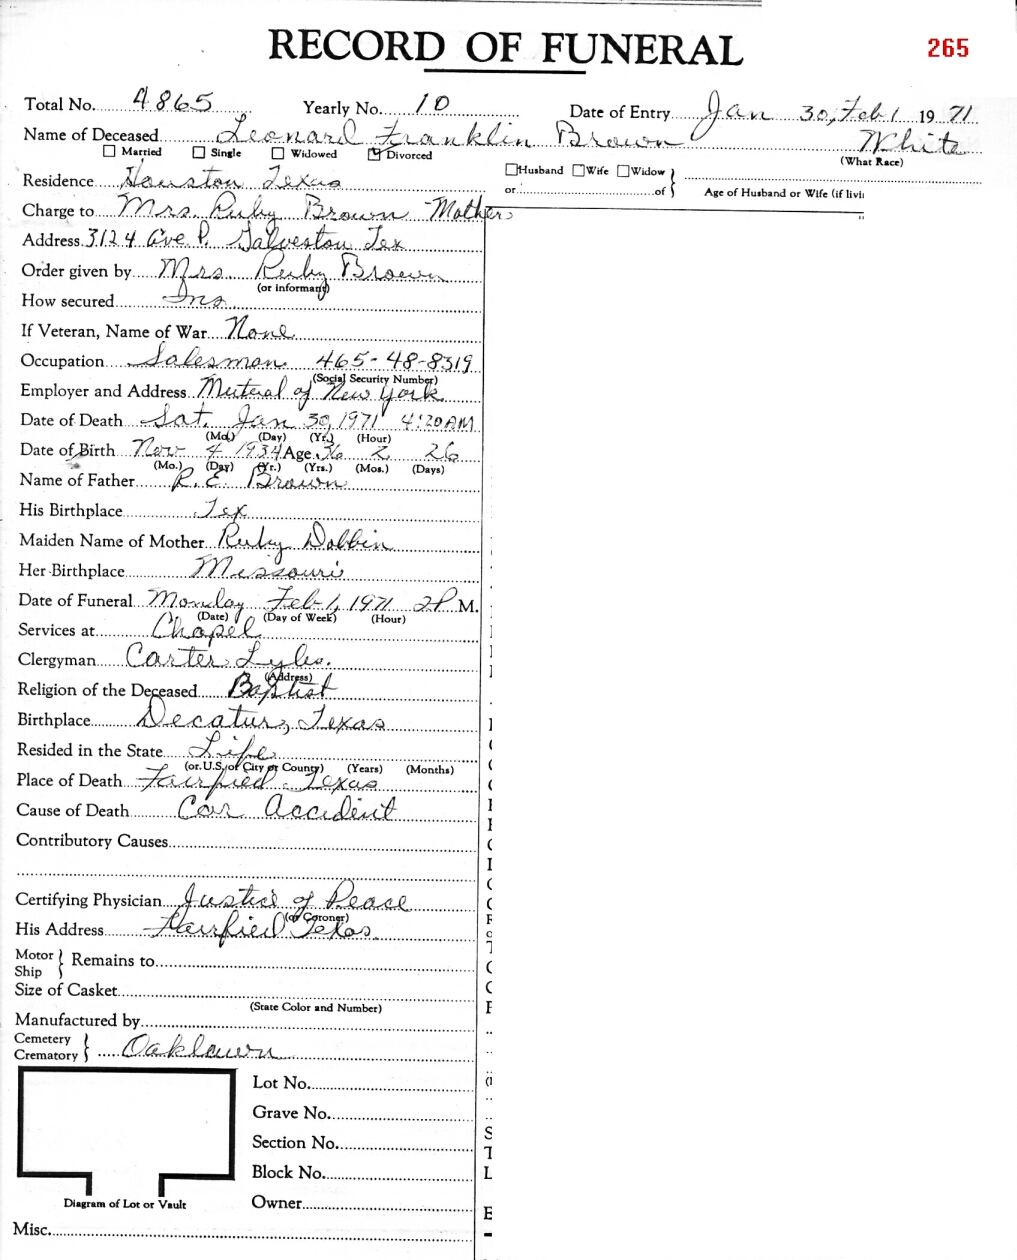 RECORD OF FUNERAL
265
Total No. 4865 Yearly No. 10 Date of Entry Jan 30, Feb 1 1971
Name of Deceased Leonard Franklin Brown White
Married Single Widowed Divorced (What Race)
Husband Wife Widow
Residence Houston Texas or of Age of Husband or Wife (if livi
Charge to Mrs. Ruby Brown Mother
Address 3124 Ave P. Galveston Tex
Order given by Mrs Ruby Brown
(or informant)
How secured Ins
If Veteran, Name of War None
Occupation Salesman 465-48-8319
(Social Security Number)
Employer and Address Muteral of New York
Date of Death Sat. Jan 30, 1971 4:20 AM
(Mo.) (Day) (Yr.) (Hour)
Date of Birth Nov 4 1934 Age 36 2 26
(Mo.) (Day) (Yr.) (Yrs.) (Mos.) (Days)
Name of Father R. E. Brown
His Birthplace Tex
Maiden Name of Mother Ruby Dobbin
Her Birthplace Missouri
Date of Funeral Monday Feb 1, 1971 2 P M.
(Date) (Day of Week) (Hour)
Services at Chapel
Clergyman Carter Lyles.
(Address)
Religion of the Deceased Baptist
Birthplace Decatur, Texas
Resided in the State Life
(or U.S., of City or County) (Years) (Months)
Place of Death Fairfied Texas
Cause of Death Car Accident
Contributory Causes
Certifying Physician Justice of Peace
(or Coroner)
His Address Fairfied Texas
Motor
Ship } Remains to
Size of Casket
(State Color and Number)
Manufactured by
Cemetery
Crematory } Oaklawn
Lot No.
Grave No.
Section No.
Block No.
Diagram of Lot or Vault
Owner
Misc.